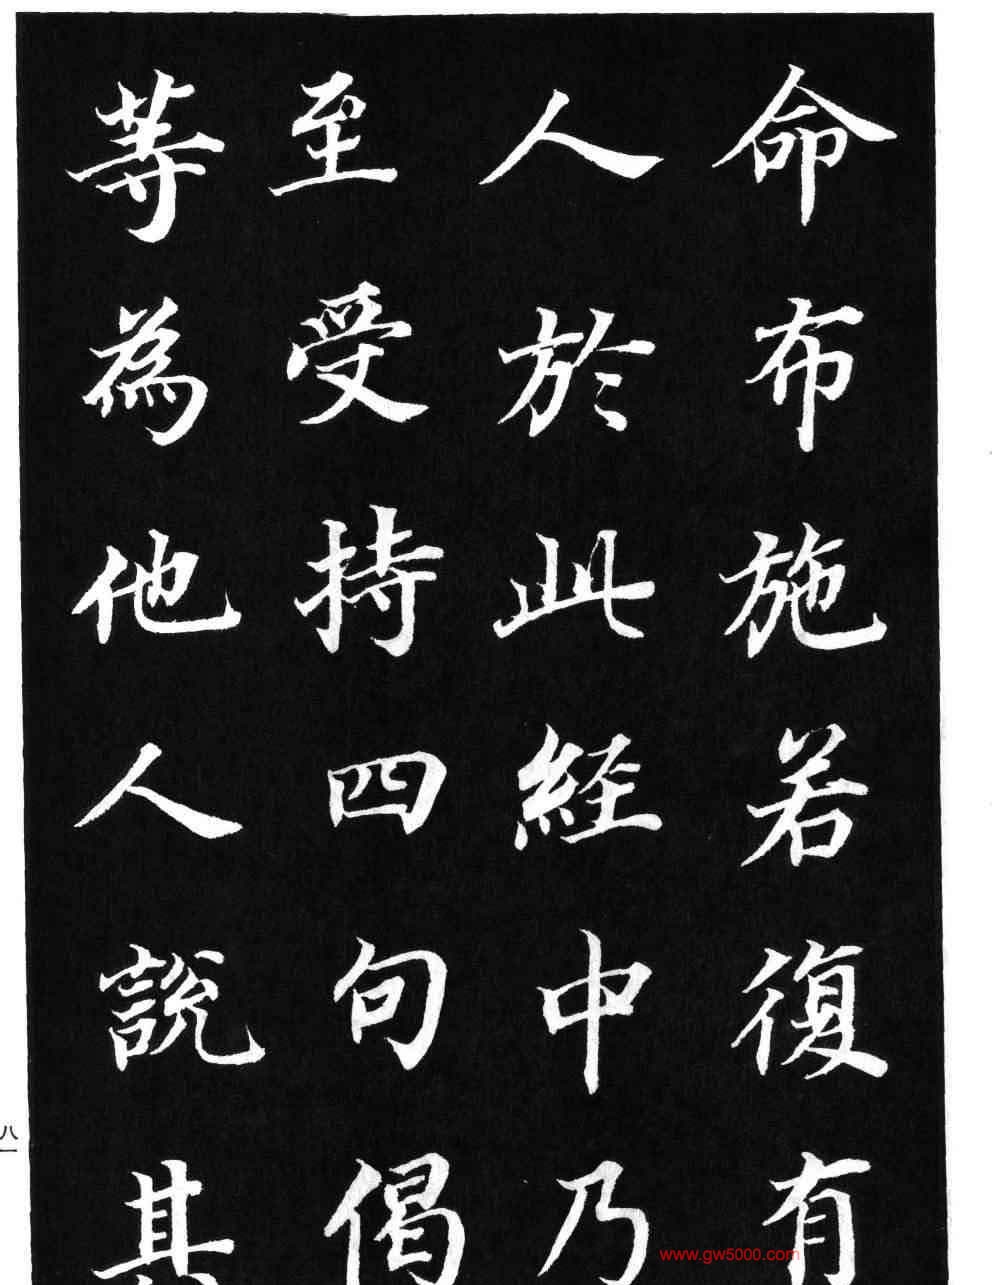 命布施若復有
人於此經中乃
至受持四句偈
等為他人說其
八一
www.gw5000.com